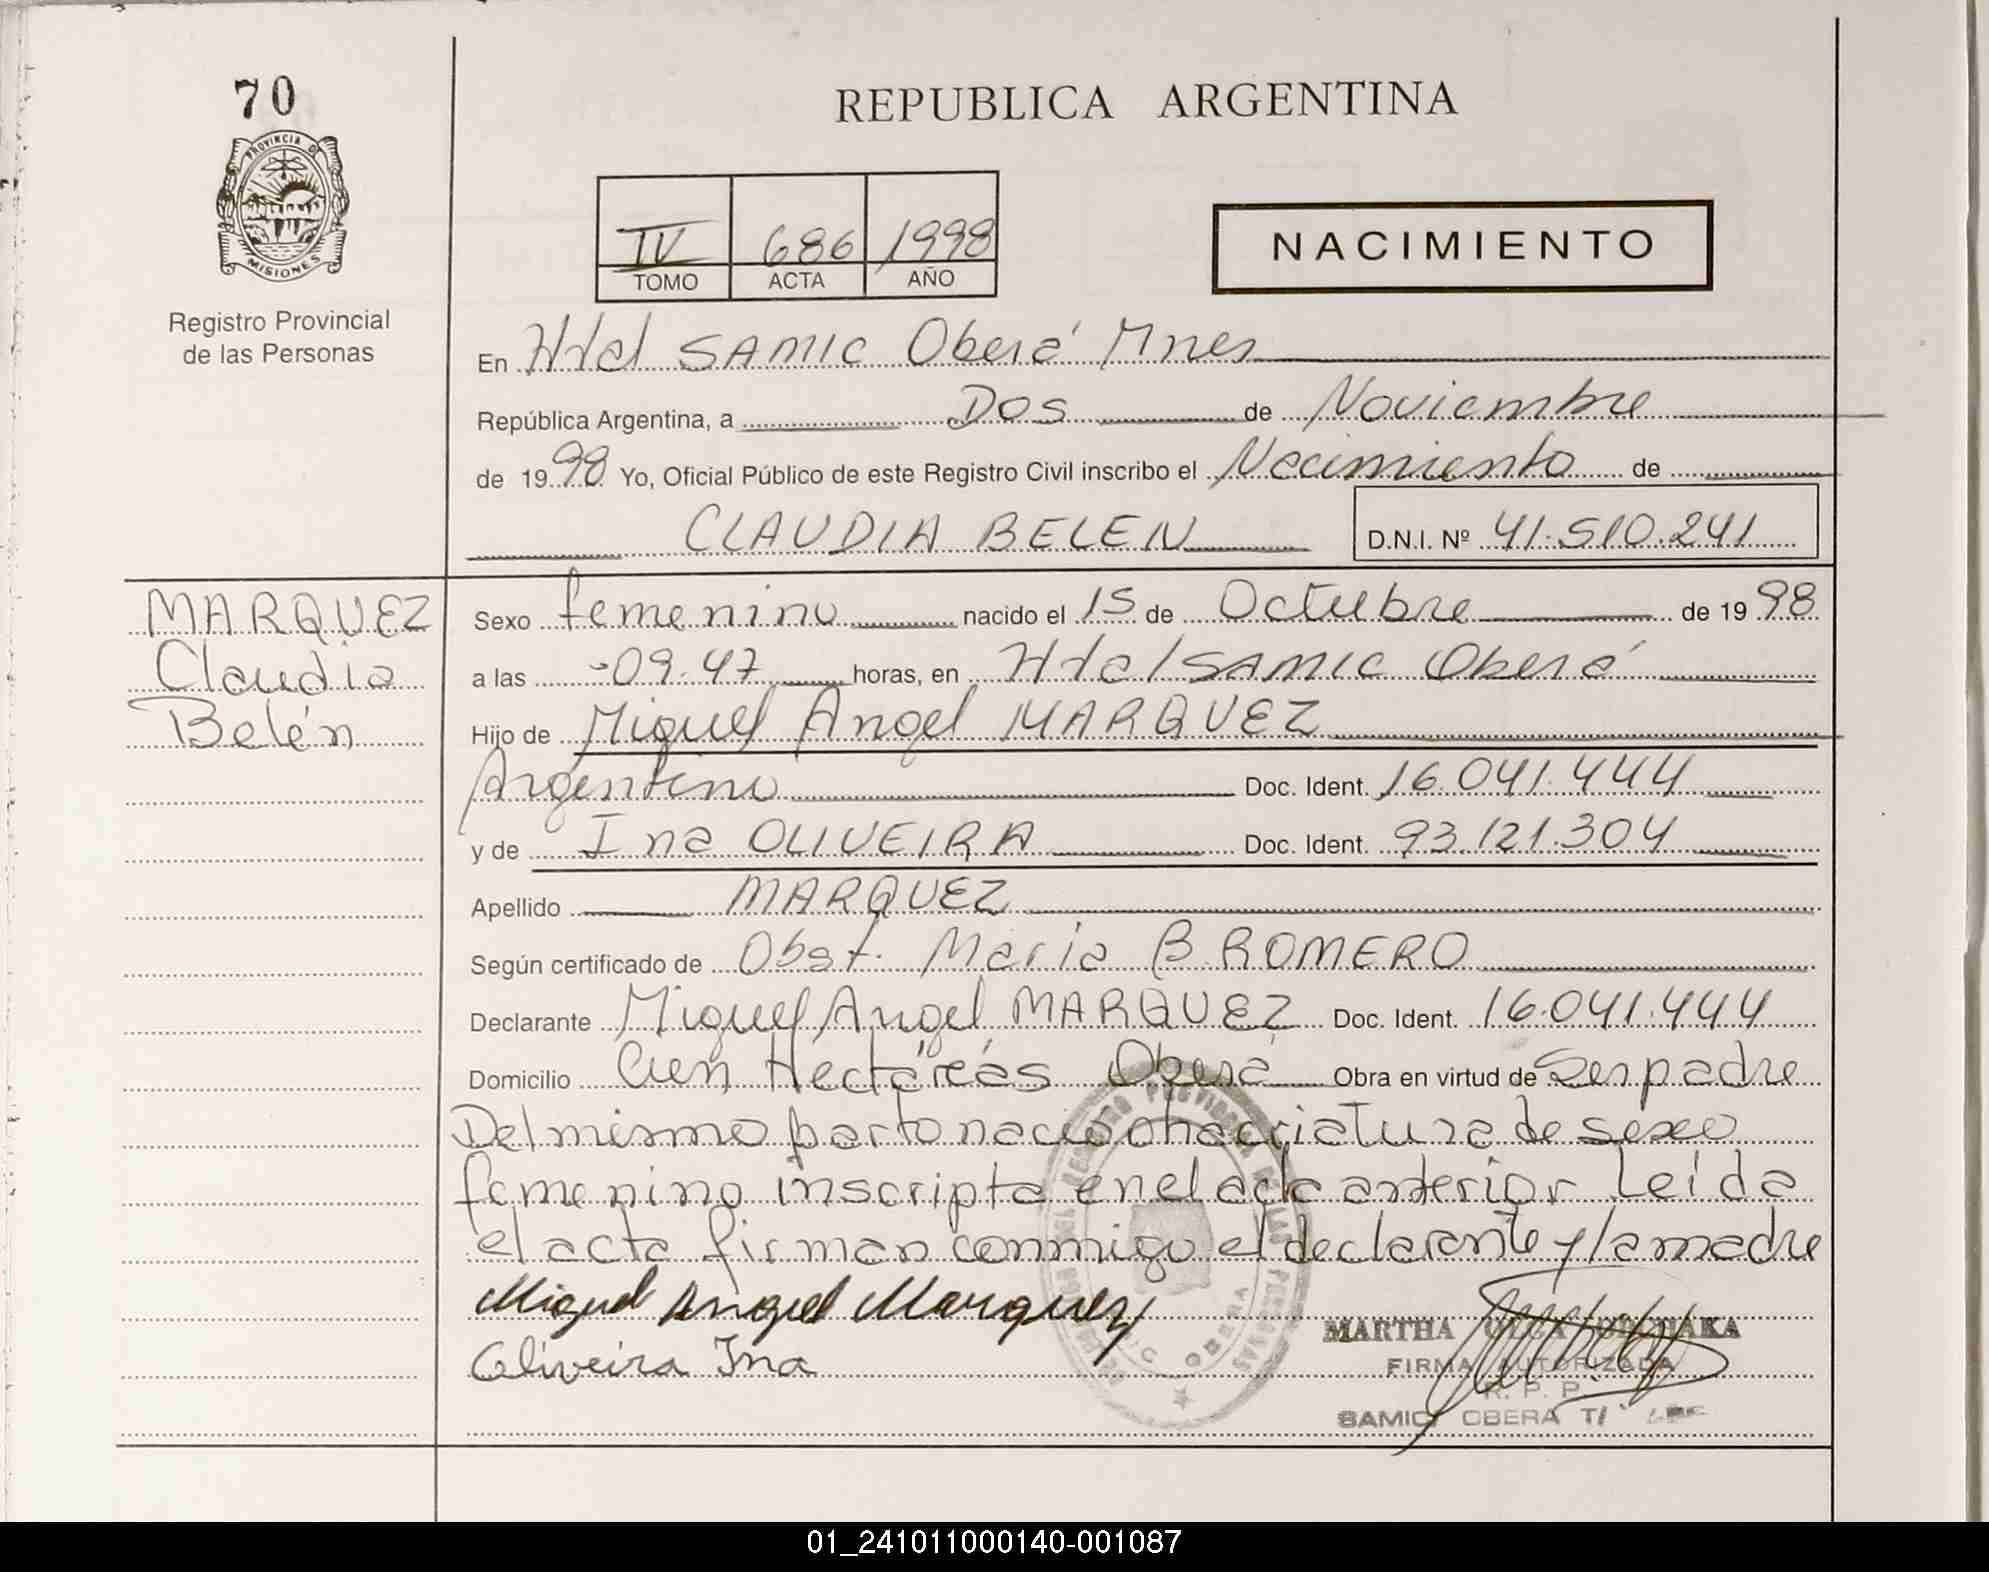 70
PROVINCIA DE
MISIONES
Registro Provincial
de las Personas
REPUBLICA ARGENTINA
IV 686 1998
TOMO ACTA AÑO
NACIMIENTO
En Htal SAMIC Oberá Mnes
República Argentina, a Dos de Noviembre
de 1998 Yo, Oficial Público de este Registro Civil inscribo el Nacimiento de
CLAUDIA BELEN D.N.I. Nº 41.510.241
MARQUEZ
Claudia
Belén
Sexo femenino nacido el 15 de Octubre de 1998
a las 09.47 horas, en Htal SAMIC Oberá
Hijo de Miguel Angel MARQUEZ
Argentino Doc. Ident. 16.041.444
y de Ina OLIVEIRA Doc. Ident. 93.121.304
Apellido MARQUEZ
Según certificado de Obst. Maria B. ROMERO
Declarante Miguel Angel MARQUEZ Doc. Ident. 16.041.444
Domicilio Cien Hectáreás Oberá Obra en virtud de Ser padre
Del mismo parto nacio otra criatura de sexo
femenino inscripta en el acta anterior Leída
el acta firman conmigo el declarante y la madre
Miguel Angel Marquez
Oliveira Ina
MARTHA
FIRMA AUTORIZADA
R. P. P.
SAMIC OBERA
01_241011000140-001087